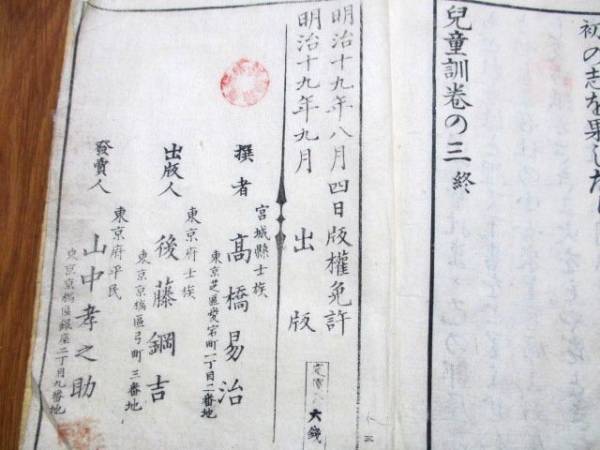 初の志を果した
兒童訓卷の三 終
明治十九年八月四日版權免許
明治十九年九月 出版
定價 六錢
撰者 宮城縣士族 高橋易治
東京芝區愛宕町一丁目二番地
出版人 東京府士族 後藤鋼吉
東京京橋區弓町三番地
發賣人 東京府平民 山中孝之助
東京京橋區銀座二丁目九番地